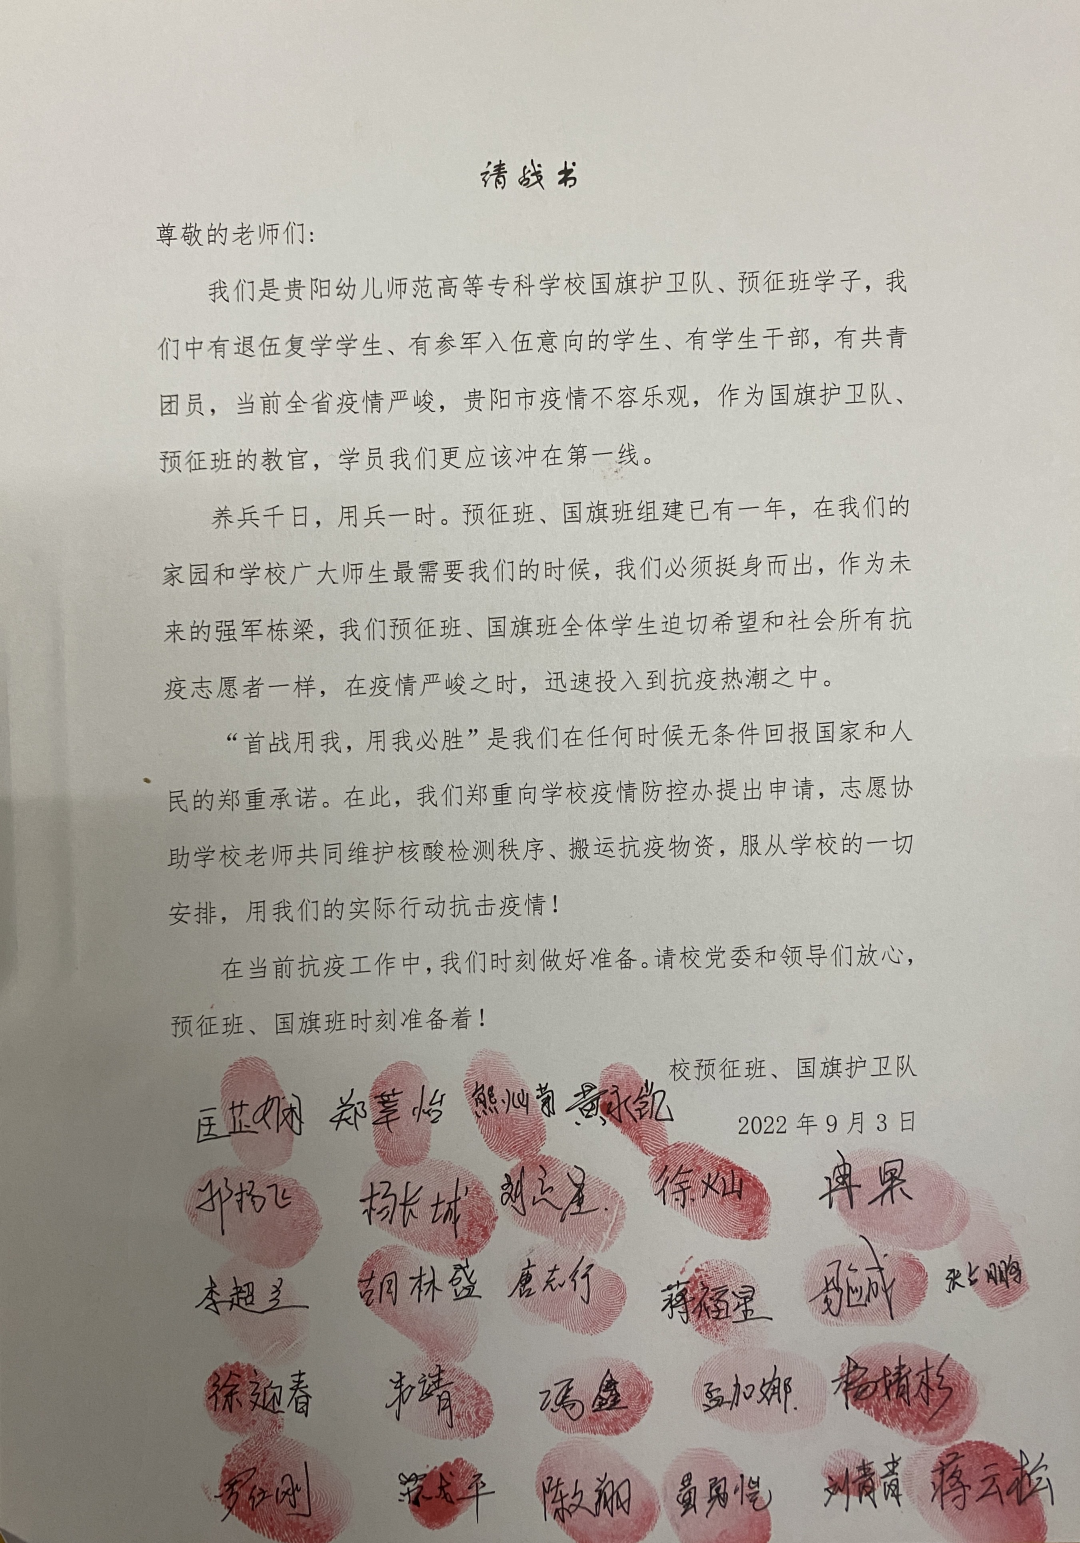 请战书
尊敬的老师们：
我们是贵阳幼儿师范高等专科学校国旗护卫队、预征班学子，我
们中有退伍复学学生、有参军入伍意向的学生、有学生干部，有共青
团员，当前全省疫情严峻，贵阳市疫情不容乐观，作为国旗护卫队、
预征班的教官，学员我们更应该冲在第一线。
养兵千日，用兵一时。预征班、国旗班组建已有一年，在我们的
家园和学校广大师生最需要我们的时候，我们必须挺身而出，作为未
来的强军栋梁，我们预征班、国旗班全体学生迫切希望和社会所有抗
疫志愿者一样，在疫情严峻之时，迅速投入到抗疫热潮之中。
“首战用我，用我必胜”是我们在任何时候无条件回报国家和人
民的郑重承诺。在此，我们郑重向学校疫情防控办提出申请，志愿协
助学校老师共同维护核酸检测秩序、搬运抗疫物资，服从学校的一切
安排，用我们的实际行动抗击疫情！
在当前抗疫工作中，我们时刻做好准备。请校党委和领导们放心，
预征班、国旗班时刻准备着！
校预征班、国旗护卫队
2022 年 9 月 3 日
匡芷娴 郑莘怡 熊灿菊 黄永凯
杨长城 刘立星 徐灿 冉果
胡林盛 唐志行 蒋福星
徐迎春 韦靖 冯鑫 孟加娜 杨婧杉
罗仕刚 陈文翔 黄勇恺 刘青青 蒋云松